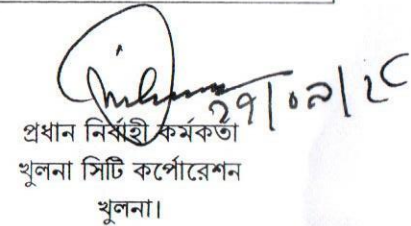 ২৭/০৯/২৫
প্রধান নির্বাহী কর্মকর্তা
খুলনা সিটি কর্পোরেশন
খুলনা।